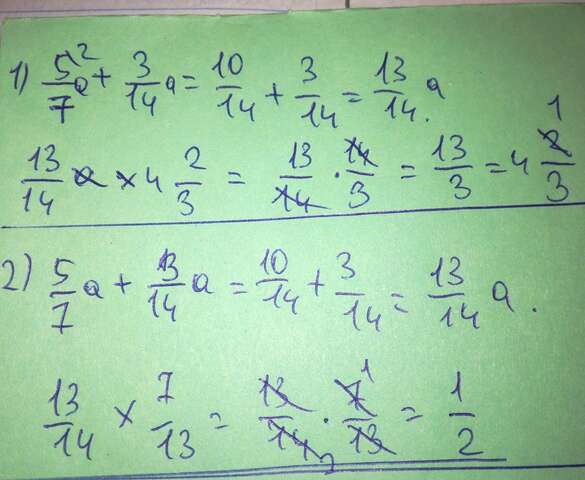 1) 5/7 a² + 3/14 a = 10/14 + 3/14 = 13/14 a.
13/14 a × 4 2/3 = 13/14 · 14/3 = 13/3 = 4 1/3
2) 5/7 a + 3/14 a = 10/14 + 3/14 = 13/14 a.
13/14 × 7/13 = 13/14 2 · 7 1/13 = 1/2